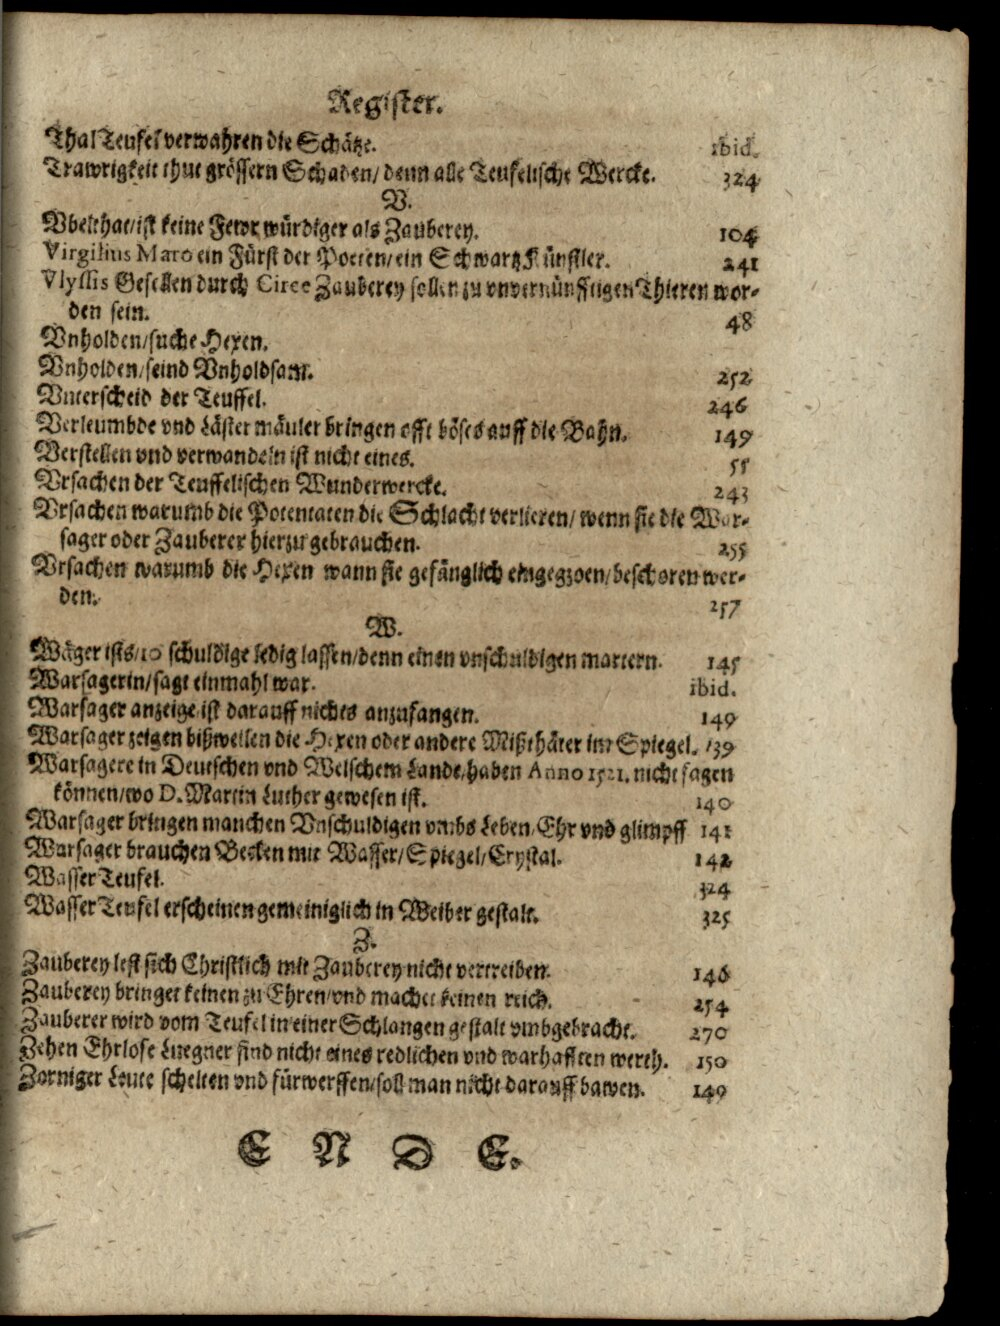 Register.
Thal Teufel verwahren die Schätze. ibid.
Trawrigkeit thut grössern Schaden/ denn alle Teufelische Wercke. 324
V.
Vbelthat/ ist keine Fewr würdiger als Zauberey. 104
Virgilius Maro ein Fürst der Poeten/ ein Schwartz Künstler. 241
Vlyssis Gesellen durch Circe Zauberey sollen zu vnvernünfftigen Thieren wor-
den sein. 48
Vnholden/ suche Hexen.
Vnholden/ seind Vnholdsam. 252
Vnterscheid der Teuffel. 246
Verleumbde vnd Läster mäuler bringen offt böses auff die Bahn. 149
Verstellen vnd verwandeln ist nicht eines. 55
Vrsachen der Teuffelischen Wunderwercke. 243
Vrsachen warumb die Potentaten die Schlacht verlieren/ wenn sie die War-
sager oder Zauberer hierzu gebrauchen. 255
Vrsachen warumb die Hexen wann sie gefänglich eingegzoen/ beschoren wer-
den. 257
W.
Wäger ists/ 10 schuldige ledig lassen/ denn einen vnschuldigen martern. 145
Warsagerin/ sagt einmahl war. ibid.
Warsager anzeige/ ist darauff nichts anzufangen. 149
Warsager zeigen bißweilen die Hexen oder andere Mißthäter im Spiegel. 139
Warsagere in Deutschen vnd Welschem Lande/ haben Anno 1521. nicht sagen
können/ wo D. Martin Luther gewesen ist. 140
Warsager bringen manchen Vnschuldigen vmbs Leben/ Ehr vnd glimpff 141
Warsager brauchen Becken mit Wasser/ Spiegel/ Crystal. 142
Wasser Teufel. 324
Wasser Teufel erscheinen gemeiniglich in Weiber gestalt. 325
Z.
Zauberey lest sich Christlich mit Zauberey nicht vertreiben. 146
Zauberey bringet keinen zu Ehren/ vnd machet keinen reich. 254
Zauberer wird vom Teufel in einer Schlangen gestalt vmbgebracht. 270
Zehen Ehrlose Luegner sind nicht eines redlichen vnd warhafften werth. 150
Zorniger Leute schelten vnd fürwerffen/ soll man nicht darauff bawen. 149
E N D E.